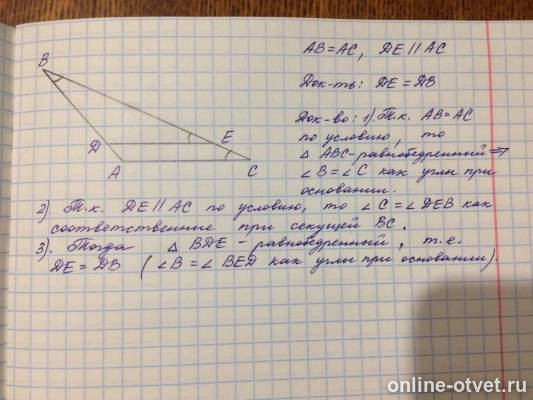 AB = AC, DE // AC
Док-ть: DE = DB
Док-во: 1). Т.к. AB = AC
по условию, то
△ ABC - равнобедренный ⇒
∠B = ∠C как углы при
основании.
B
D
E
A
C
2) Т.к. DE // AC по условию, то ∠C = ∠DEB как
соответственные при секущей BC.
3). Тогда △ BDE - равнобедренный, т.е.
DE = DB (∠B = ∠BED как углы при основании).
online-otvet.ru